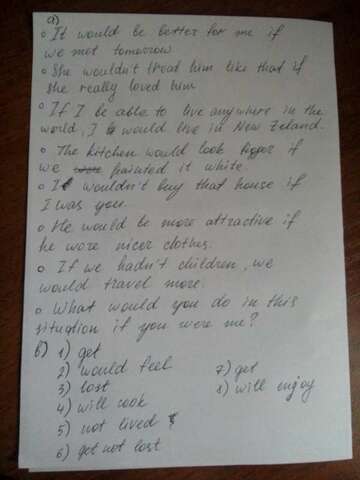 a)
o It would be better for me if
we met tomorrow
o She wouldn't treat him like that if
she really loved him
o If I be able to live anywhere in the
world, I would live in New Zeland.
o The kitchen would look if
we painted it white.
o I wouldn't buy that house if
I was you.
o He would be more attractive if
he wore nicer clothes.
o If we hadn't children, we
would travel more.
o What would you do in this
situation if you were me?
b) 1) get
2) would feel
3) lost
4) will cook
5) not lived
6) get not lost
7) get
8) will enjoy